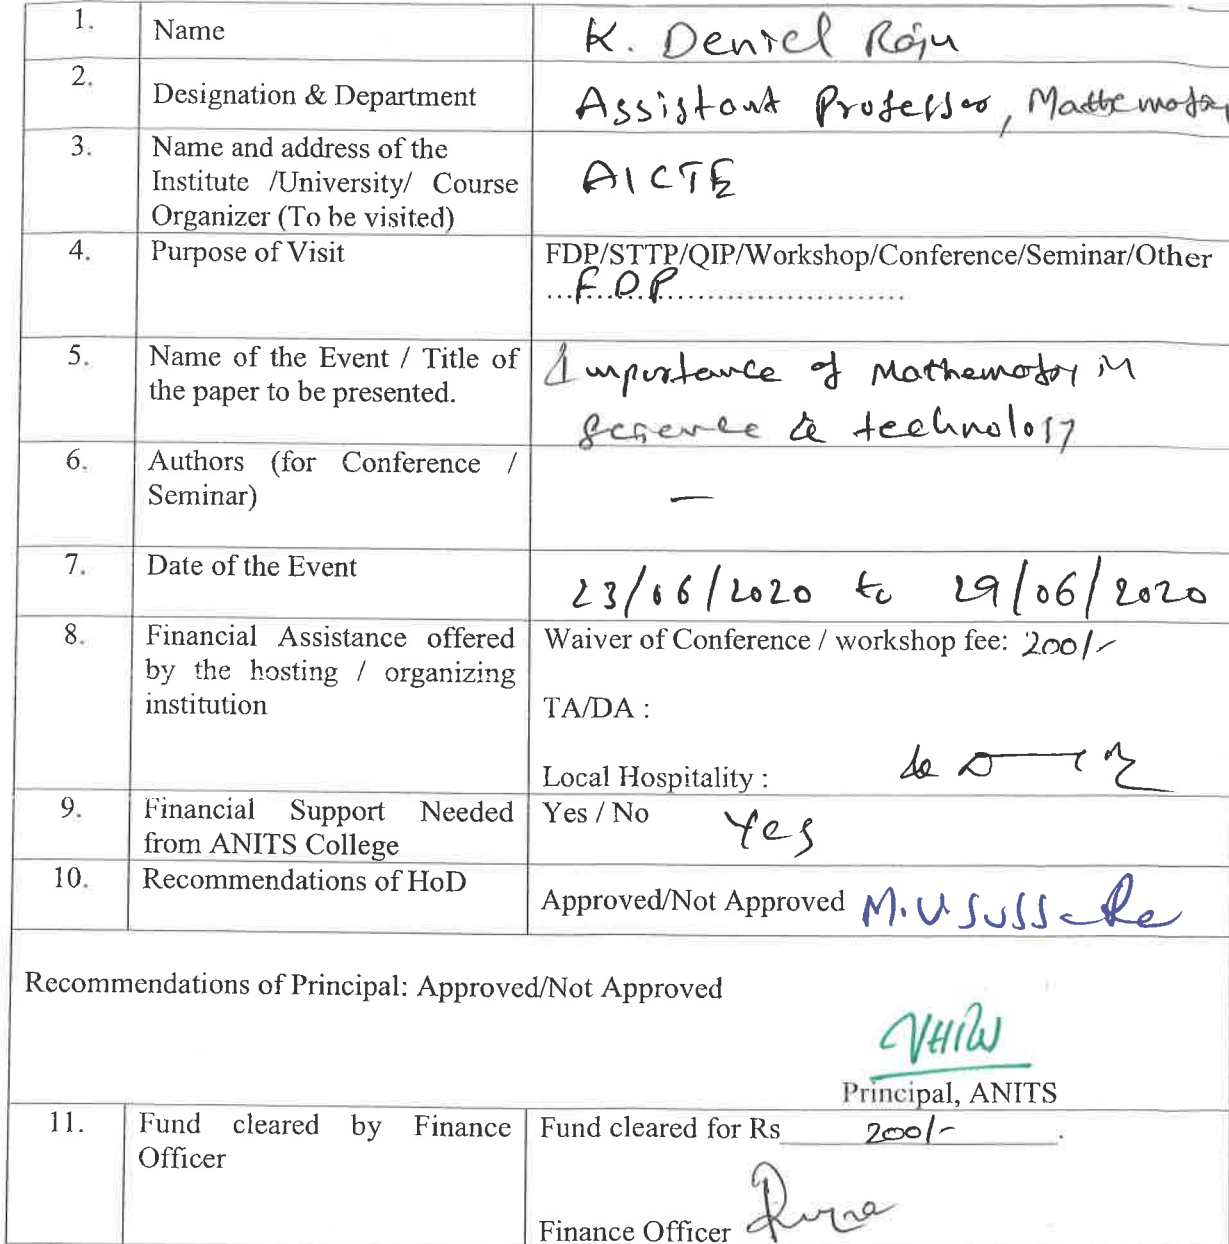 1. Name K. Deniel Raju
2. Designation & Department Assistant Professor, Mathematics
3. Name and address of the Institute /University/ Course Organizer (To be visited) AICTE
4. Purpose of Visit FDP/STTP/QIP/Workshop/Conference/Seminar/Other
...F.D.P...
5. Name of the Event / Title of the paper to be presented. Importance of Mathematics in
Science & technology
6. Authors (for Conference / Seminar) —
7. Date of the Event 23/06/2020 to 29/06/2020
8. Financial Assistance offered by the hosting / organizing institution Waiver of Conference / workshop fee: 200/-
TA/DA :
Local Hospitality :
9. Financial Support Needed from ANITS College Yes / No Yes
10. Recommendations of HoD Approved/Not Approved
Recommendations of Principal: Approved/Not Approved
Principal, ANITS
11. Fund cleared by Finance Officer Fund cleared for Rs 200/- .
Finance Officer